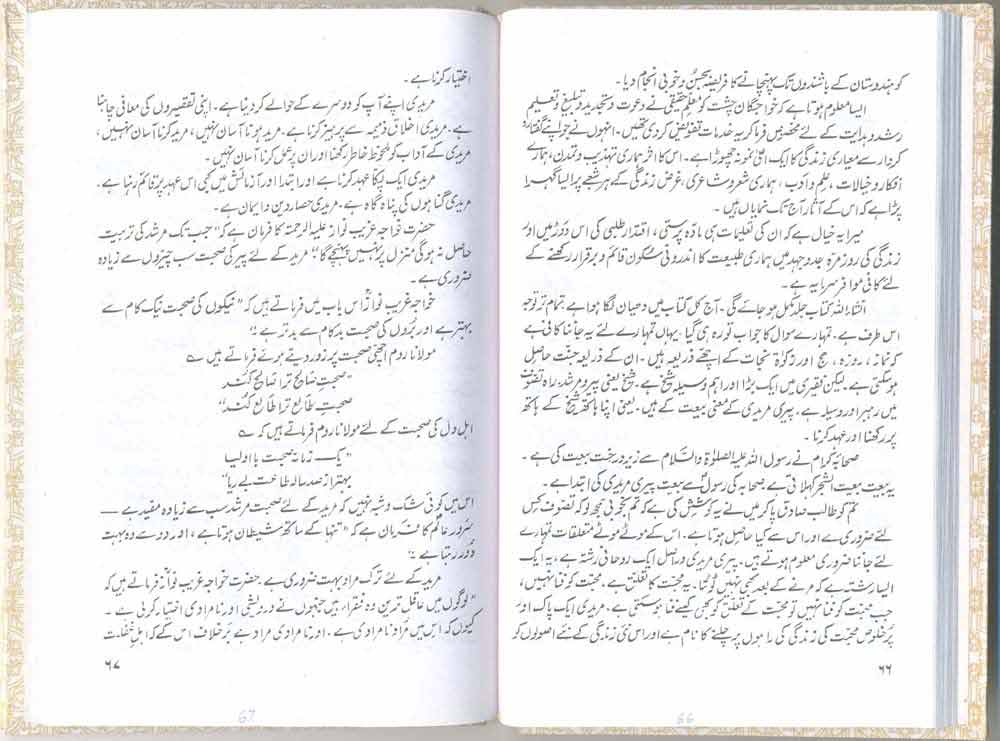 کو ہندوستان کے باشندوں تک پہنچانے کا فریضہ بحسن و خوبی انجام دیا۔
ایسا معلوم ہوتا ہے کہ خواجگان چشت کو معلم حقیقی نے دعوت و تجدید و تبلیغ و تعلیم
رشد و ہدایت کے لئے مخصوص فرما کر یہ خدمات تفویض کر دی تھیں۔ انہوں نے جو اپنے گفتار و
کردار سے معیاری زندگی کا ایک اعلیٰ نمونہ چھوڑا ہے۔ اس کا اثر ہماری تہذیب و تمدن، ہمارے
افکار و خیالات، علم و ادب، ہماری شعر و شاعری، غرض زندگی کے ہر شعبے پر ایسا گہرا
پڑا ہے کہ اس کے آثار آج تک نمایاں ہیں۔
میرا یہ خیال ہے کہ ان کی تعلیمات ہی مادہ پرستی، اقتدار طلبی کی اس دوڑ میں اور
زندگی کی روز مرہ جدوجہد میں ہماری طبیعت کا اندرونی سکون قائم و برقرار رکھنے کے
لئے کافی وافر سرمایہ ہے۔
انشاء اللہ کتاب جلد مکمل ہو جائے گی۔ آج کل کتاب میں دھیان لگا ہوا ہے تمام تر توجہ
اس طرف ہے۔ تمہارے سوال کا جواب تو رہ ہی گیا۔ یہاں تمہارے لئے یہ جاننا کافی ہے
کہ نماز، روزہ، حج اور زکوٰۃ نجات کے اچھے ذریعہ ہیں۔ ان کے ذریعہ جنت حاصل
ہو سکتی ہے۔ لیکن فقیری میں ایک بڑا اور اہم وسیلہ شیخ ہے۔ شیخ یعنی پیر و مرشد، راہ تصوف
میں رہبر اور وسیلہ ہے۔ پیری مریدی کے معنی بیعت کے ہیں۔ یعنی اپنا ہاتھ شیخ کے ہاتھ
پر رکھنا اور عہد کرنا۔
صحابہ کرام نے رسول اللہ علیہ الصلوٰۃ والسلام سے زیر درخت بیعت کی ہے۔
یہ بیعت بیعت الشجر کہلاتی ہے صحابہ کی رسول سے بیعت پیری مریدی کی ابتدا ہے۔
تم کو طالب صادق پا کر میں نے یہ کوشش کی ہے کہ تم بخوبی سمجھ لو کہ تصوف کس
لئے ضروری ہے اور اس سے کیا حاصل ہوتا ہے۔ اس کے موٹے موٹے متعلقات تمہارے
لئے جاننا ضروری معلوم ہوتے ہیں۔ پیری مریدی دراصل ایک روحانی رشتہ ہے، یہ ایک
ایسا رشتہ ہے کہ مرنے کے بعد بھی نہیں ٹوٹتا۔ یہ محبت کا تعلق ہے۔ محبت کو فنا نہیں،
جب محبت کو فنا نہیں تو محبت کے تعلق کو بھی کیسے فنا ہو سکتی ہے۔ مریدی ایک پاک اور
پر خلوص محبت کی زندگی کی راہوں پر چلنے کا نام ہے اور اس نئی زندگی کے نئے اصولوں کو
۶۶
66
اختیار کرنا ہے۔
مریدی اپنے آپ کو دوسرے کے حوالے کر دینا ہے۔ اپنی تقصیروں کی معافی چاہنا
ہے۔ مریدی اخلاق ذمیمہ سے پرہیز کرنا ہے۔ مرید ہونا آسان نہیں، مرید کرنا آسان نہیں،
مریدی کے آداب کو ملحوظ خاطر رکھنا اور ان پر عمل کرنا آسان نہیں۔
مریدی ایک پکا عہد کرنا ہے اور ابتدا اور آزمائش میں بھی اس عہد پر قائم رہنا ہے۔
مریدی گناہوں کی پناہ گاہ ہے۔ مریدی حصار دین و ایمان ہے۔
حضرت خواجہ غریب نواز علیہ الرحمۃ کا فرمان ہے کہ "جب تک مرشد کی تربیت
حاصل نہ ہو گی منزل پر نہیں پہنچے گا" مرید کے لئے پیر کی صحبت سب چیزوں سے زیادہ
ضروری ہے۔
خواجہ غریب نواز اس باب میں فرماتے ہیں کہ "نیکوں کی صحبت نیک کام سے
بہتر ہے اور بروں کی صحبت بد کام سے بدتر ہے۔"
مولانا روم اچھی صحبت پر زور دیتے ہوئے فرماتے ہیں ؎
"صحبت صالح ترا صالح کند
صحبت طالع ترا طالع کند"
اہل دل کی صحبت کے لئے مولانا روم فرماتے ہیں کہ ؎
"یک زمانہ صحبت با اولیا
بہتر از صد سالہ طاعت بے ریا"
اس میں کوئی شک و شبہ نہیں کہ مرید کے لئے صحبت مرشد سب سے زیادہ مفید ہے —
سرور عالم کا فرمان ہے کہ "تنہا کے ساتھ شیطان ہوتا ہے، اور دو سے وہ بہت
دور رہتا ہے۔"
مرید کے لئے ترک مراد بہت ضروری ہے۔ حضرت خواجہ غریب نواز فرماتے ہیں کہ
"لوگوں میں عاقل ترین وہ فقراء ہیں جنہوں نے درویشی اور نامرادی اختیار کر لی ہے۔
کیوں کہ اس میں مراد نامرادی ہے۔ اور نامرادی مراد ہے برخلاف اس کے کہ اہل غفلت
۶۷
67